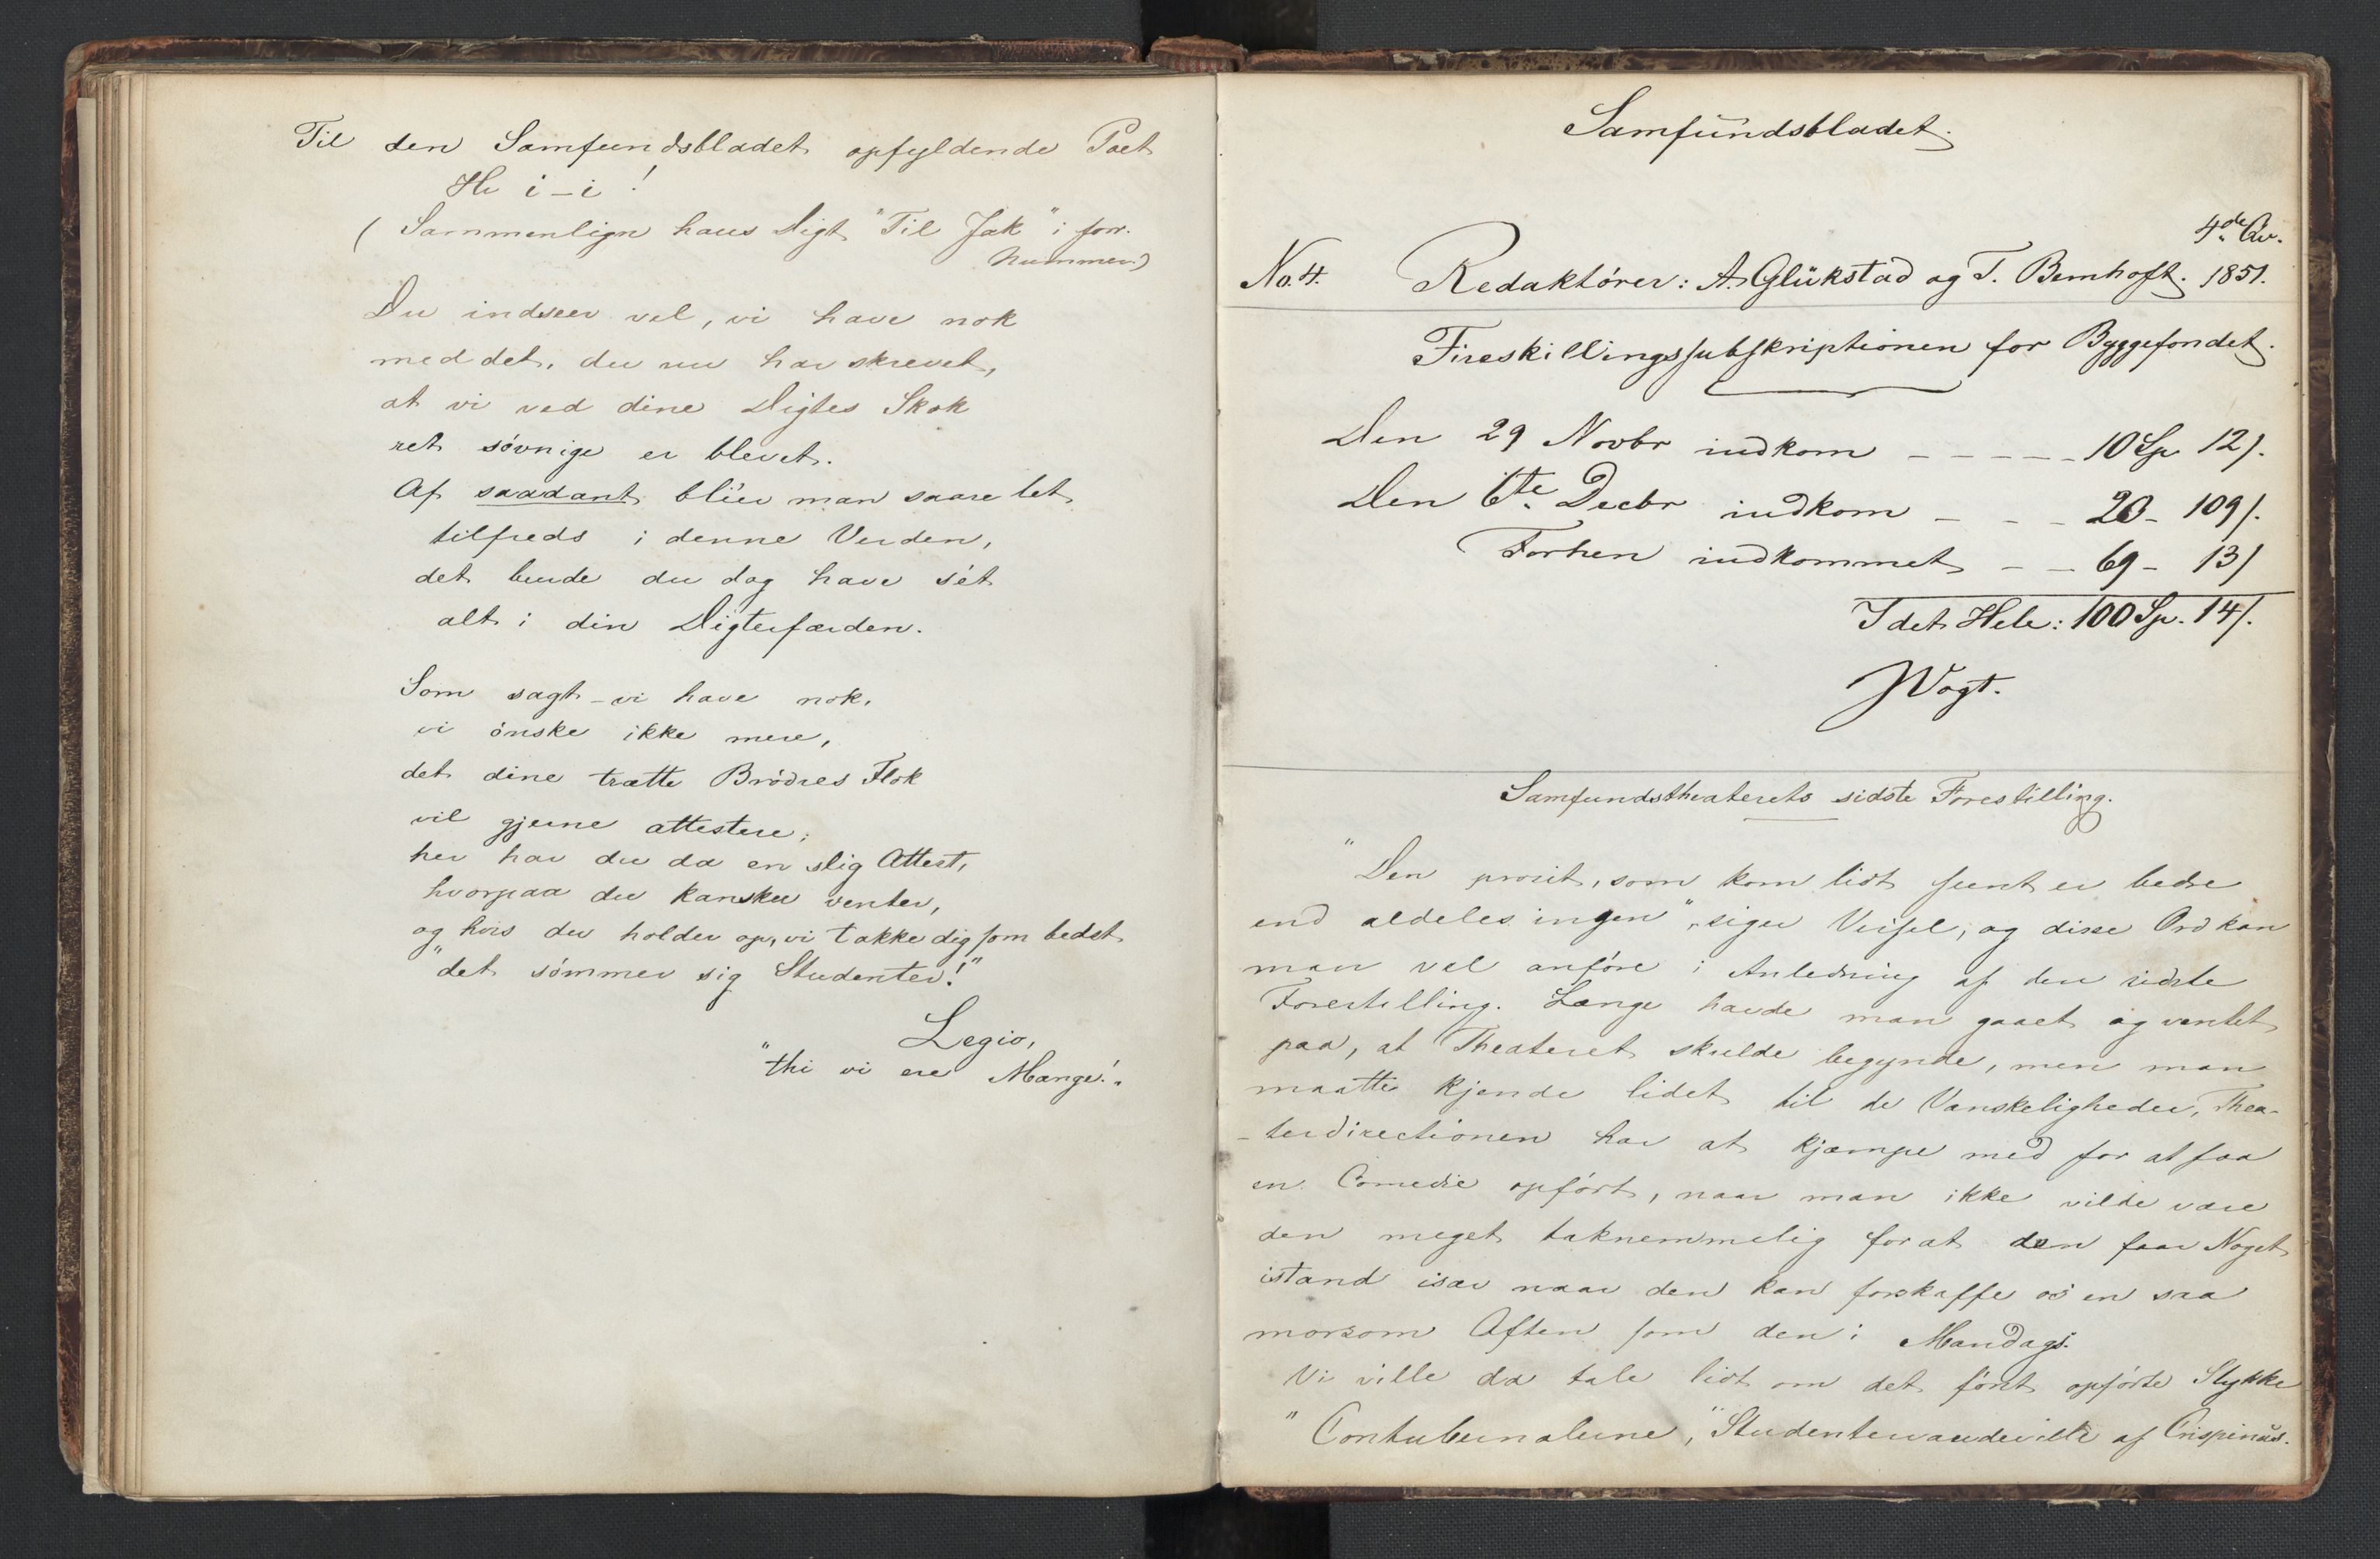 Til den Samfundsbladet opfyldende Poet
Hr i-i!
(Sammenlign hans Digt "Til Jak" i forr.
Nummer)
Du indseer vel, vi have nok
med det, du nu har skrevet,
at vi ved dine Digtes Skok
ret søvnige er blevet.
Af saadant bliver man saare let
tilfreds i denne Verden,
det burde du dog have sét
alt i din Digterfærden.
Som sagt - vi have nok,
vi ønske ikke mere,
det dine trætte Brødres Flok
vil gjerne attestere;
her har du da en slig Attest,
hvorpaa du kanskee venter,
og hvis du holder op, vi takke dig som bedst
"det sømmer sig Studenter!"
Legio,
"thi vi ere Mange!"
Samfundsbladet.
4de Qv.
No. 4. Redaktører: A. Glükstad og T. Bernhoft. 1851.
Fireskillingssubskriptionen for Byggefondet.
Den 29 Novbr indkom - - - - - 10 Sp. 12 s.
Den 6te Decbr indkom - - - 20 - 109 s.
Forhen indkommet - - 69 - 13 s
I det Hele: 100 Sp. 14 s.
JVogt.
Samfundstheaterets sidste Forestilling.
"Den prosit, som kom lidt seent er bedre
end aldeles ingen", siger Vessel, og disse Ord kan
man vel anføre i Anledning af den sidste
Forestilling. Længe havde man gaaet og ventet
paa, at Theateret skulde begynde, men man
maatte kjende lidet til de Vanskeligheder, Thea-
-terdirectionen har at kjæmpe med for at faa
en Comedie opført, naar man ikke vilde være
den meget taknemmelig for at den faar Noget
istand især naar den kan forskaffe os en saa
morsom Aften som den i Mandags.
Vi ville da tale lidt om det først opførte Stykke
"Contubernalerne," Studentervaudeville af Crispinus.